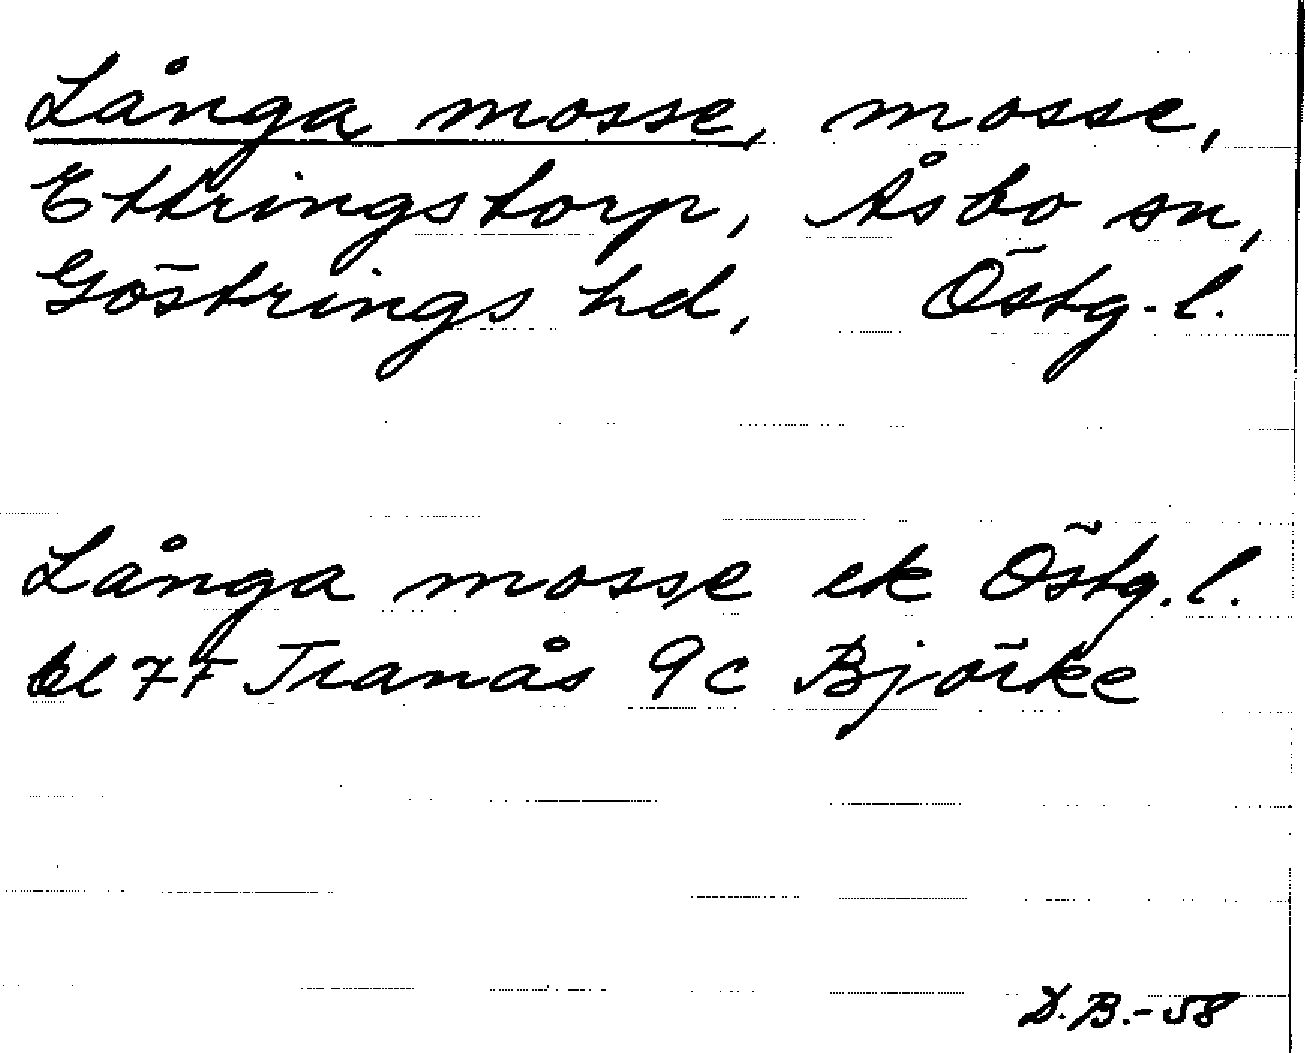 Långa mosse, mosse,
Ettringstorp, Åsbo sn,
Göstrings hd, Östg. l.
Långa mosse ek Östg. l.
bl 77 Tranås 9c Björke
D.B.-58